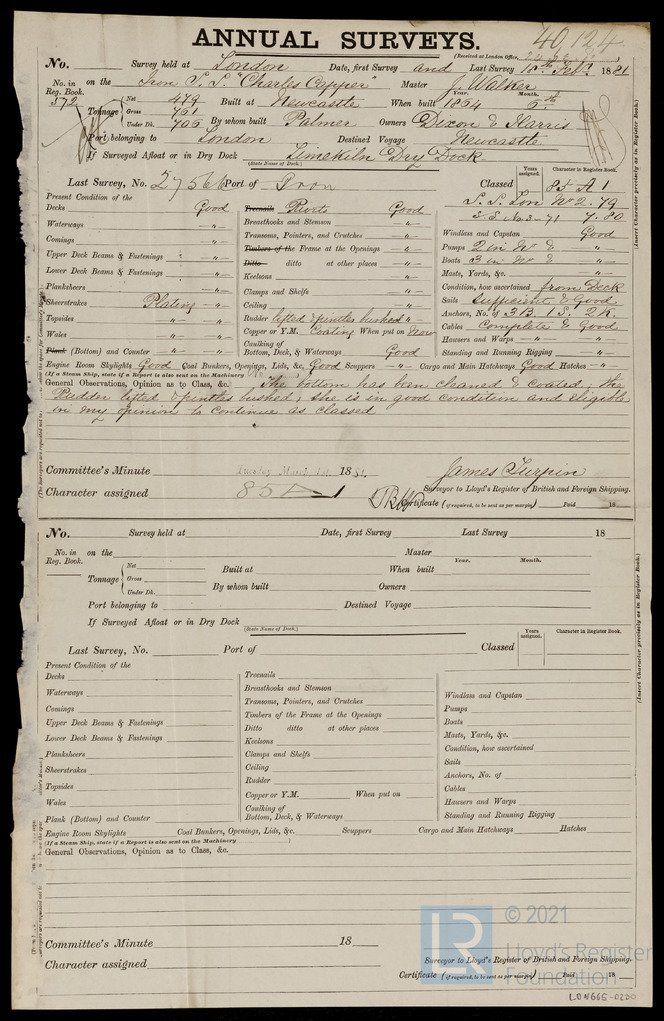 ANNUAL SURVEYS.
40,124
(Received at London Office,
No. Survey held at London Date, first Survey and Last Survey 18th Feby 1881
No. in Reg. Book. on the Iron S.S. "Charles Capper" Master J. Walker
572 Tonnage Net 479 Built at Newcastle When built 1864 Year. Month.
Gross 761
Under Dk. 706 By whom built Palmer Owners Dixon & Harris
Port belonging to London Destined Voyage Newcastle
If Surveyed Afloat or in Dry Dock Limekiln Dry Dock
(State Name of Dock.)
Last Survey, No. 27566 Port of Iron Classed
Years assigned. Character in Register Book.
Present Condition of the
Decks Good
Waterways -"-
Comings -"-
Upper Deck Beams & Fastenings -"-
Lower Deck Beams & Fastenings -"-
Planksheers -"-
Sheerstrakes Plating -"-
Topsides -"- -"-
Wales -"- -"-
Plank (Bottom) and Counter -"- -"-
Treenails Rivets Good
Breasthooks and Stemson -"-
Transoms, Pointers, and Crutches -"-
Timbers of the Frame at the Openings -"-
Ditto ditto at other places -"-
Keelsons -"-
Clamps and Shelfs -"-
Ceiling -"-
Rudder lifted & pintles bushed -"-
Copper or Y.M. Coating When put on Now
Caulking of Bottom, Deck, & Waterways Good
Windlass and Capstan Good
Pumps -"-
Boats -"-
Masts, Yards, &c. -"-
Condition, how ascertained from Deck
Sails Sufficient & Good
Anchors, No. of 3 B. 1 S. 2 K.
Cables Complete & Good
Hawsers and Warps -"-
Standing and Running Rigging -"-
Engine Room Skylights Good Coal Bunkers, Openings, Lids, &c. Good Scuppers -"- Cargo and Main Hatchways Good Hatches -"-
(If a Steam Ship, state if a Report is also sent on the Machinery
General Observations, Opinion as to Class, &c. The bottom has been cleaned & coated; the
Rudder lifted & pintles bushed; she is in good condition and eligible
in my opinion to continue as classed
Committee's Minute Tuesday March 1st 1881.
James Turpin
Surveyor to Lloyd's Register of British and Foreign Shipping.
Character assigned 85 A 1
Certificate (if required, to be sent as per margin) Paid 18
(Insert Character precisely as in Register Book.)
No. Survey held at Date, first Survey Last Survey 18
No. in Reg. Book. on the Master
Tonnage Net Built at When built Year. Month.
Gross
Under Dk. By whom built Owners
Port belonging to Destined Voyage
If Surveyed Afloat or in Dry Dock
(State Name of Dock.)
Last Survey, No. Port of Classed
Years assigned. Character in Register Book.
Present Condition of the
Decks
Waterways
Comings
Upper Deck Beams & Fastenings
Lower Deck Beams & Fastenings
Planksheers
Sheerstrakes
Topsides
Wales
Plank (Bottom) and Counter
Treenails
Breasthooks and Stemson
Transoms, Pointers, and Crutches
Timbers of the Frame at the Openings
Ditto ditto at other places
Keelsons
Clamps and Shelfs
Ceiling
Rudder
Copper or Y.M. When put on
Caulking of Bottom, Deck, & Waterways
Windlass and Capstan
Pumps
Boats
Masts, Yards, &c.
Condition, how ascertained
Sails
Anchors, No. of
Cables
Hawsers and Warps
Standing and Running Rigging
Engine Room Skylights Coal Bunkers, Openings, Lids, &c. Scuppers Cargo and Main Hatchways Hatches
(If a Steam Ship, state if a Report is also sent on the Machinery
General Observations, Opinion as to Class, &c.
Committee's Minute 18
Character assigned
Surveyor to Lloyd's Register of British and Foreign Shipping.
Certificate (if required, to be sent as per margin) Paid 18
(Insert Character precisely as in Register Book.)
LR © 2021
Lloyd's Register
Foundation
LON666-0200